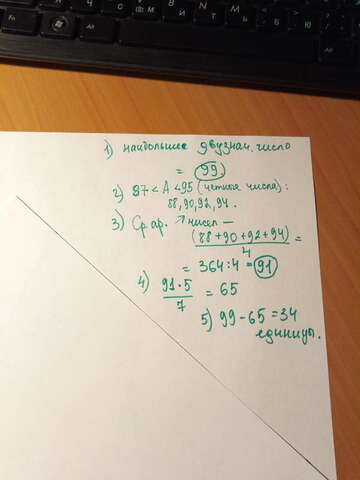 1) наибольшее двузнач. число
= 99.
2) 87 < A < 95 (четные числа):
88, 90, 92, 94.
3) Ср. ар. ↗ чисел —
(88+90+92+94)
4
=
= 364:4 = 91
4) 91·5
7
= 65
5) 99-65=34
единицы.